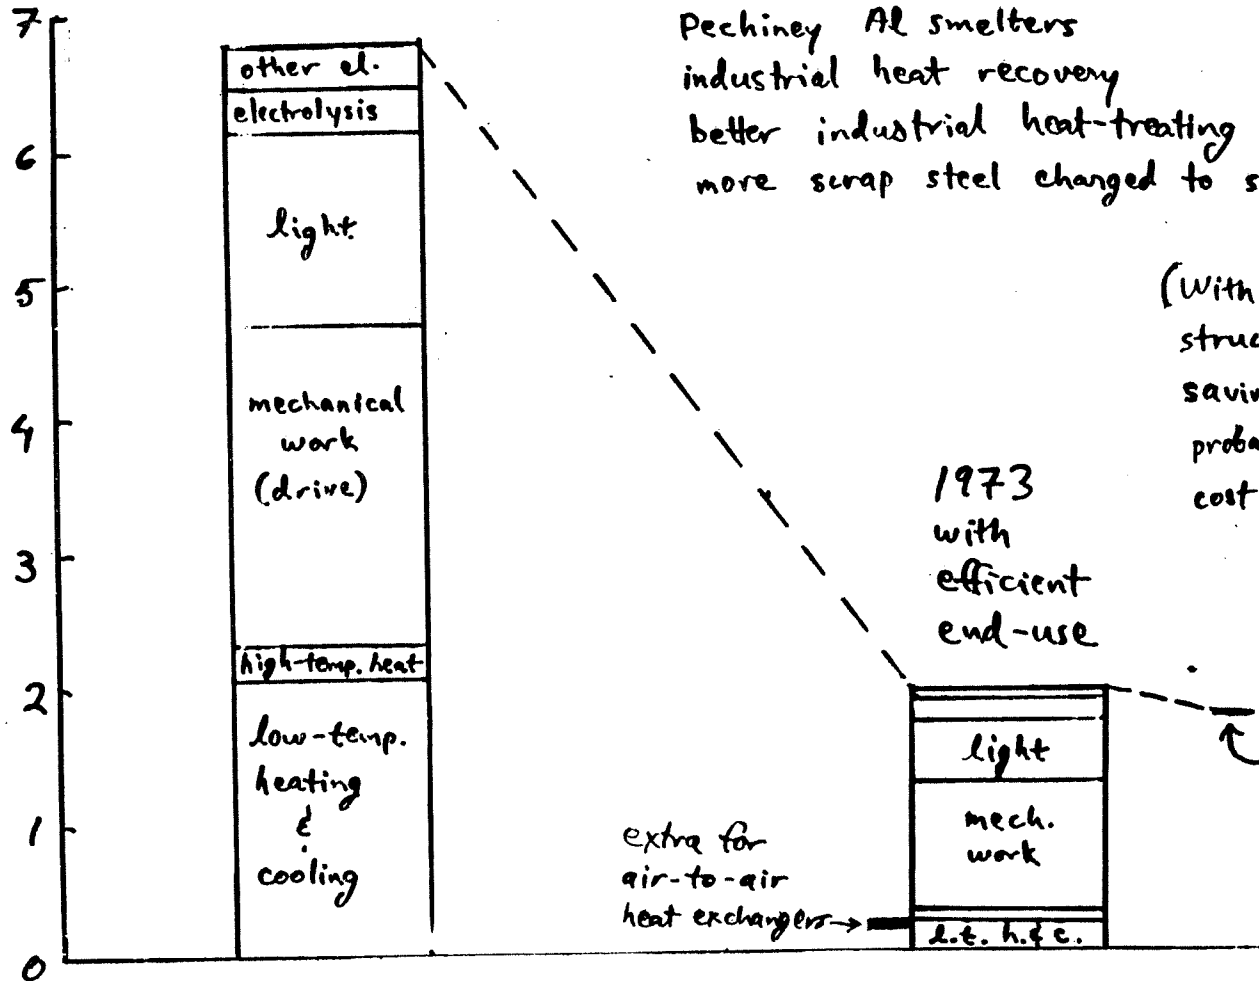 7
6
5
4
3
2
1
0
other el.
electrolysis
light
mechanical
work
(drive)
high-temp. heat
low-temp.
heating
&
cooling
Pechiney Al smelters
industrial heat recovery
better industrial heat-treating
more scrap steel changed to s
(With
struc
savin
proba
cost
1973
with
efficient
end-use
light
mech.
work
l.t. h. & c.
extra for
air-to-air
heat exchangers→